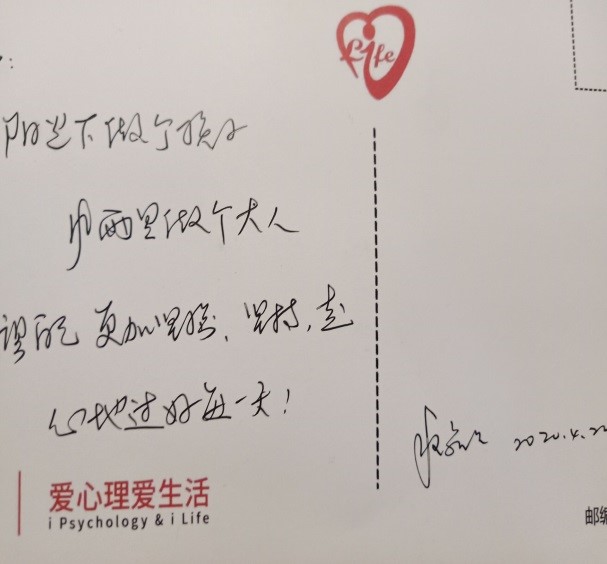 Life
:
阳光下做个孩子
风雨里做个大人
更加坚强、坚持,走
心地过好每一天!
2020.4.22
爱心理爱生活
i Psychology & i Life
邮编